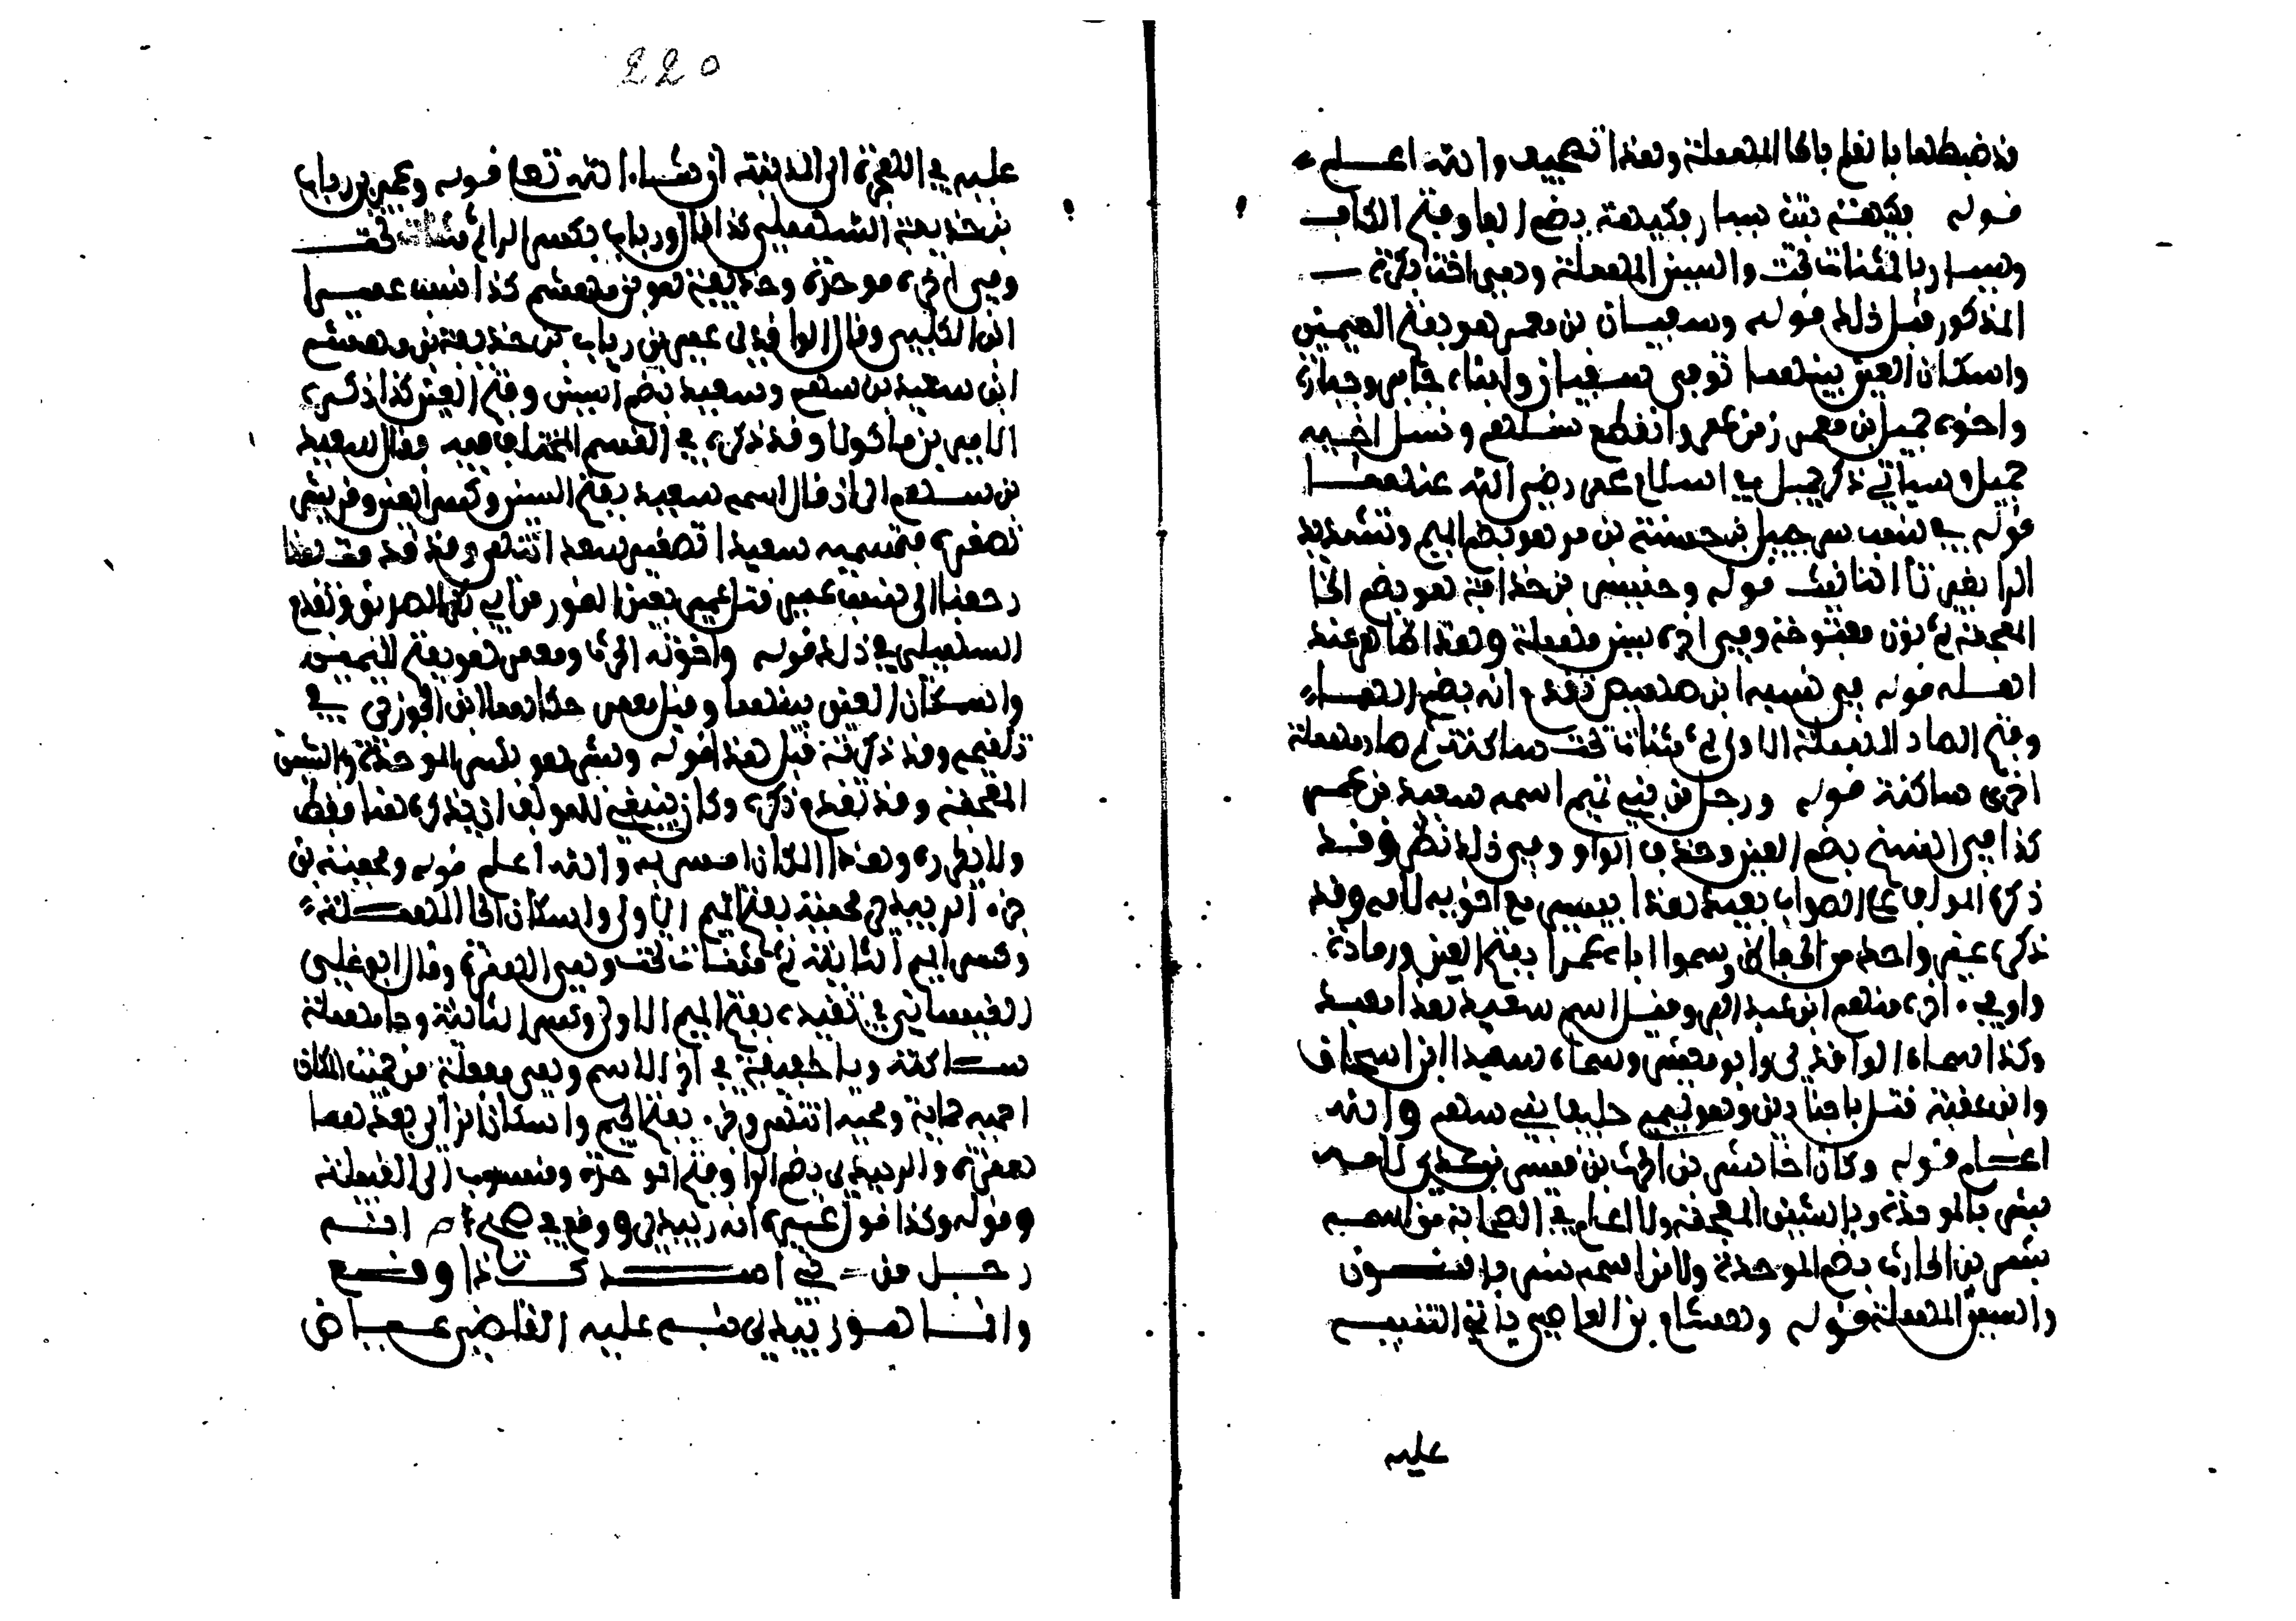 قد ضبطها بالقلم بالحا المهملة وهذا تصحيف والله اعلم
قوله فكيهة بنت يسار فكيهة بضم الفا وفتح الكاف
ويسار بالمثناة تحت والسين المهملة وهي اخت ابي تجراة
المذكور قبل ذلك قوله وسفيان بن معمر هو بفتح الميمين
واسكان العين بينهما توفي سفيان وابناه جابر وجنادة
واخوه جميل بن معمر زمن عمر وانقطع نسلهم ونسل اخيه
جميل وسياتي ذكر جميل في اسلام عمر رضي الله عنهما
قوله في نسب شرحبيل بن حسنة بن مر هو بضم الميم وتشديد
الرا بغير تا التانيث قوله وخنيس بن حذافة هو بضم الخا
المعجمة ثم نون مفتوحة وفي اخره سين مهملة وهذا ظاهر عند
اهله قوله في نسبه ابن هصيص تقدم انه بضم الهاء
وفتح الصاد المهملة الاولى ثم مثناة تحت ساكنة ثم صاد مهملة
اخرى ساكنة قوله ورجل من بني تميم اسمه سعيد بن عمر
كذا في النسخ بضم العين وحذف الواو وفي ذلك نظر وقد
ذكره المولف على الصواب بعيد هذا بيسير مع اخويه لامه وقد
ذكره غير واحد من الحفاظ وسموا اباه عمرا بفتح العين وزيادة
واو في اخره منهم ابن عبد البر وقيل اسم سعيد هذا معبد
وكذا سماه الواقدي وابو معشر وسماه سعيدا ابن اسحاق
وابن عقبة قتل باجنادين وهو تميمي حليف بني سهم والله
اعلم قوله وكان اخا بشر بن الحرث بن قيس بن عدي لامه
بشر بالموحدة وبالشين المعجمة ولا اعلم في الصحابة من اسمه
بشر بن الحارث بضم الموحدة ولا من اسمه نسر بالنون
والسين المهملة قوله وهشام بن العاصي ياتي التنبيه
عليه
220
عليه في الهجرة الى المدينة ان شاء الله تعالى قوله وعمير بن رياب
بن حذيفة السهمي كذا قال ورياب بكسر الرا ثم مثناة تحت
وفي اخره موحدة وحذيفة هو بن مهشم كذا نسب عميرا
ابن الكلبي وقال الواقدي عمير بن رياب بن حذيفة بن مهشم
ابن سعيد بن سهم وسعيد بضم السين وفتح العين كذا ذكره
الامير بن ماكولا وقد ذكره في القسم المختلف فيه فقال سعيد
بن سهم الى ان قال اسمه سعيد بفتح السين وكسر العين وقريش
تصغره فتسميه سعيدا تصغير سعد انتهى وقد قدمت هذا
رجعنا الى نسب عمير قتل عمير بعين التمر مع ابي بكر الصديق وتقدم
السهيلي في ذلك قوله واخوته الحرث ومعمر هو بفتح الميمين
واسكان العين بينهما وقيل معمر حكاهما ابن الجوزي في
تلقيحه وقد ذكرته قبل هذا قوله وبشر هو بكسر الموحدة والشين
المعجمة وقد تقدم ذكره وكان ينبغي للمولف ان يذكره هنا فقط
ولا يكرره وهذا المكان امس به والله اعلم قوله ومحمية بن
جزء الزبيدي محمية بفتح الميم الاولى واسكان الحا المهملة
وكسر الميم الثانية ثم مثناة تحت وهي الهجرة وقال ابو علي
الغساني في تقييده بفتح الميم الاولى وكسر الثانية وحا مهملة
ساكنة ويا خفيفة في اخر الاسم وهي مفعلة من حميت المكان
احميه حماية ومحمية انتهى وجزء بفتح الجيم واسكان الزاي بعدهما
همزة والزبيدي بضم الزا وفتح الموحدة ومنسوب الى القبيلة
وقوله وكذا قول غيره انه زبيدي ووقع في صحيح م انه
رجل من بني اسد كذا وقع
وانما هو زبيدي نبه عليه القاضي عياض